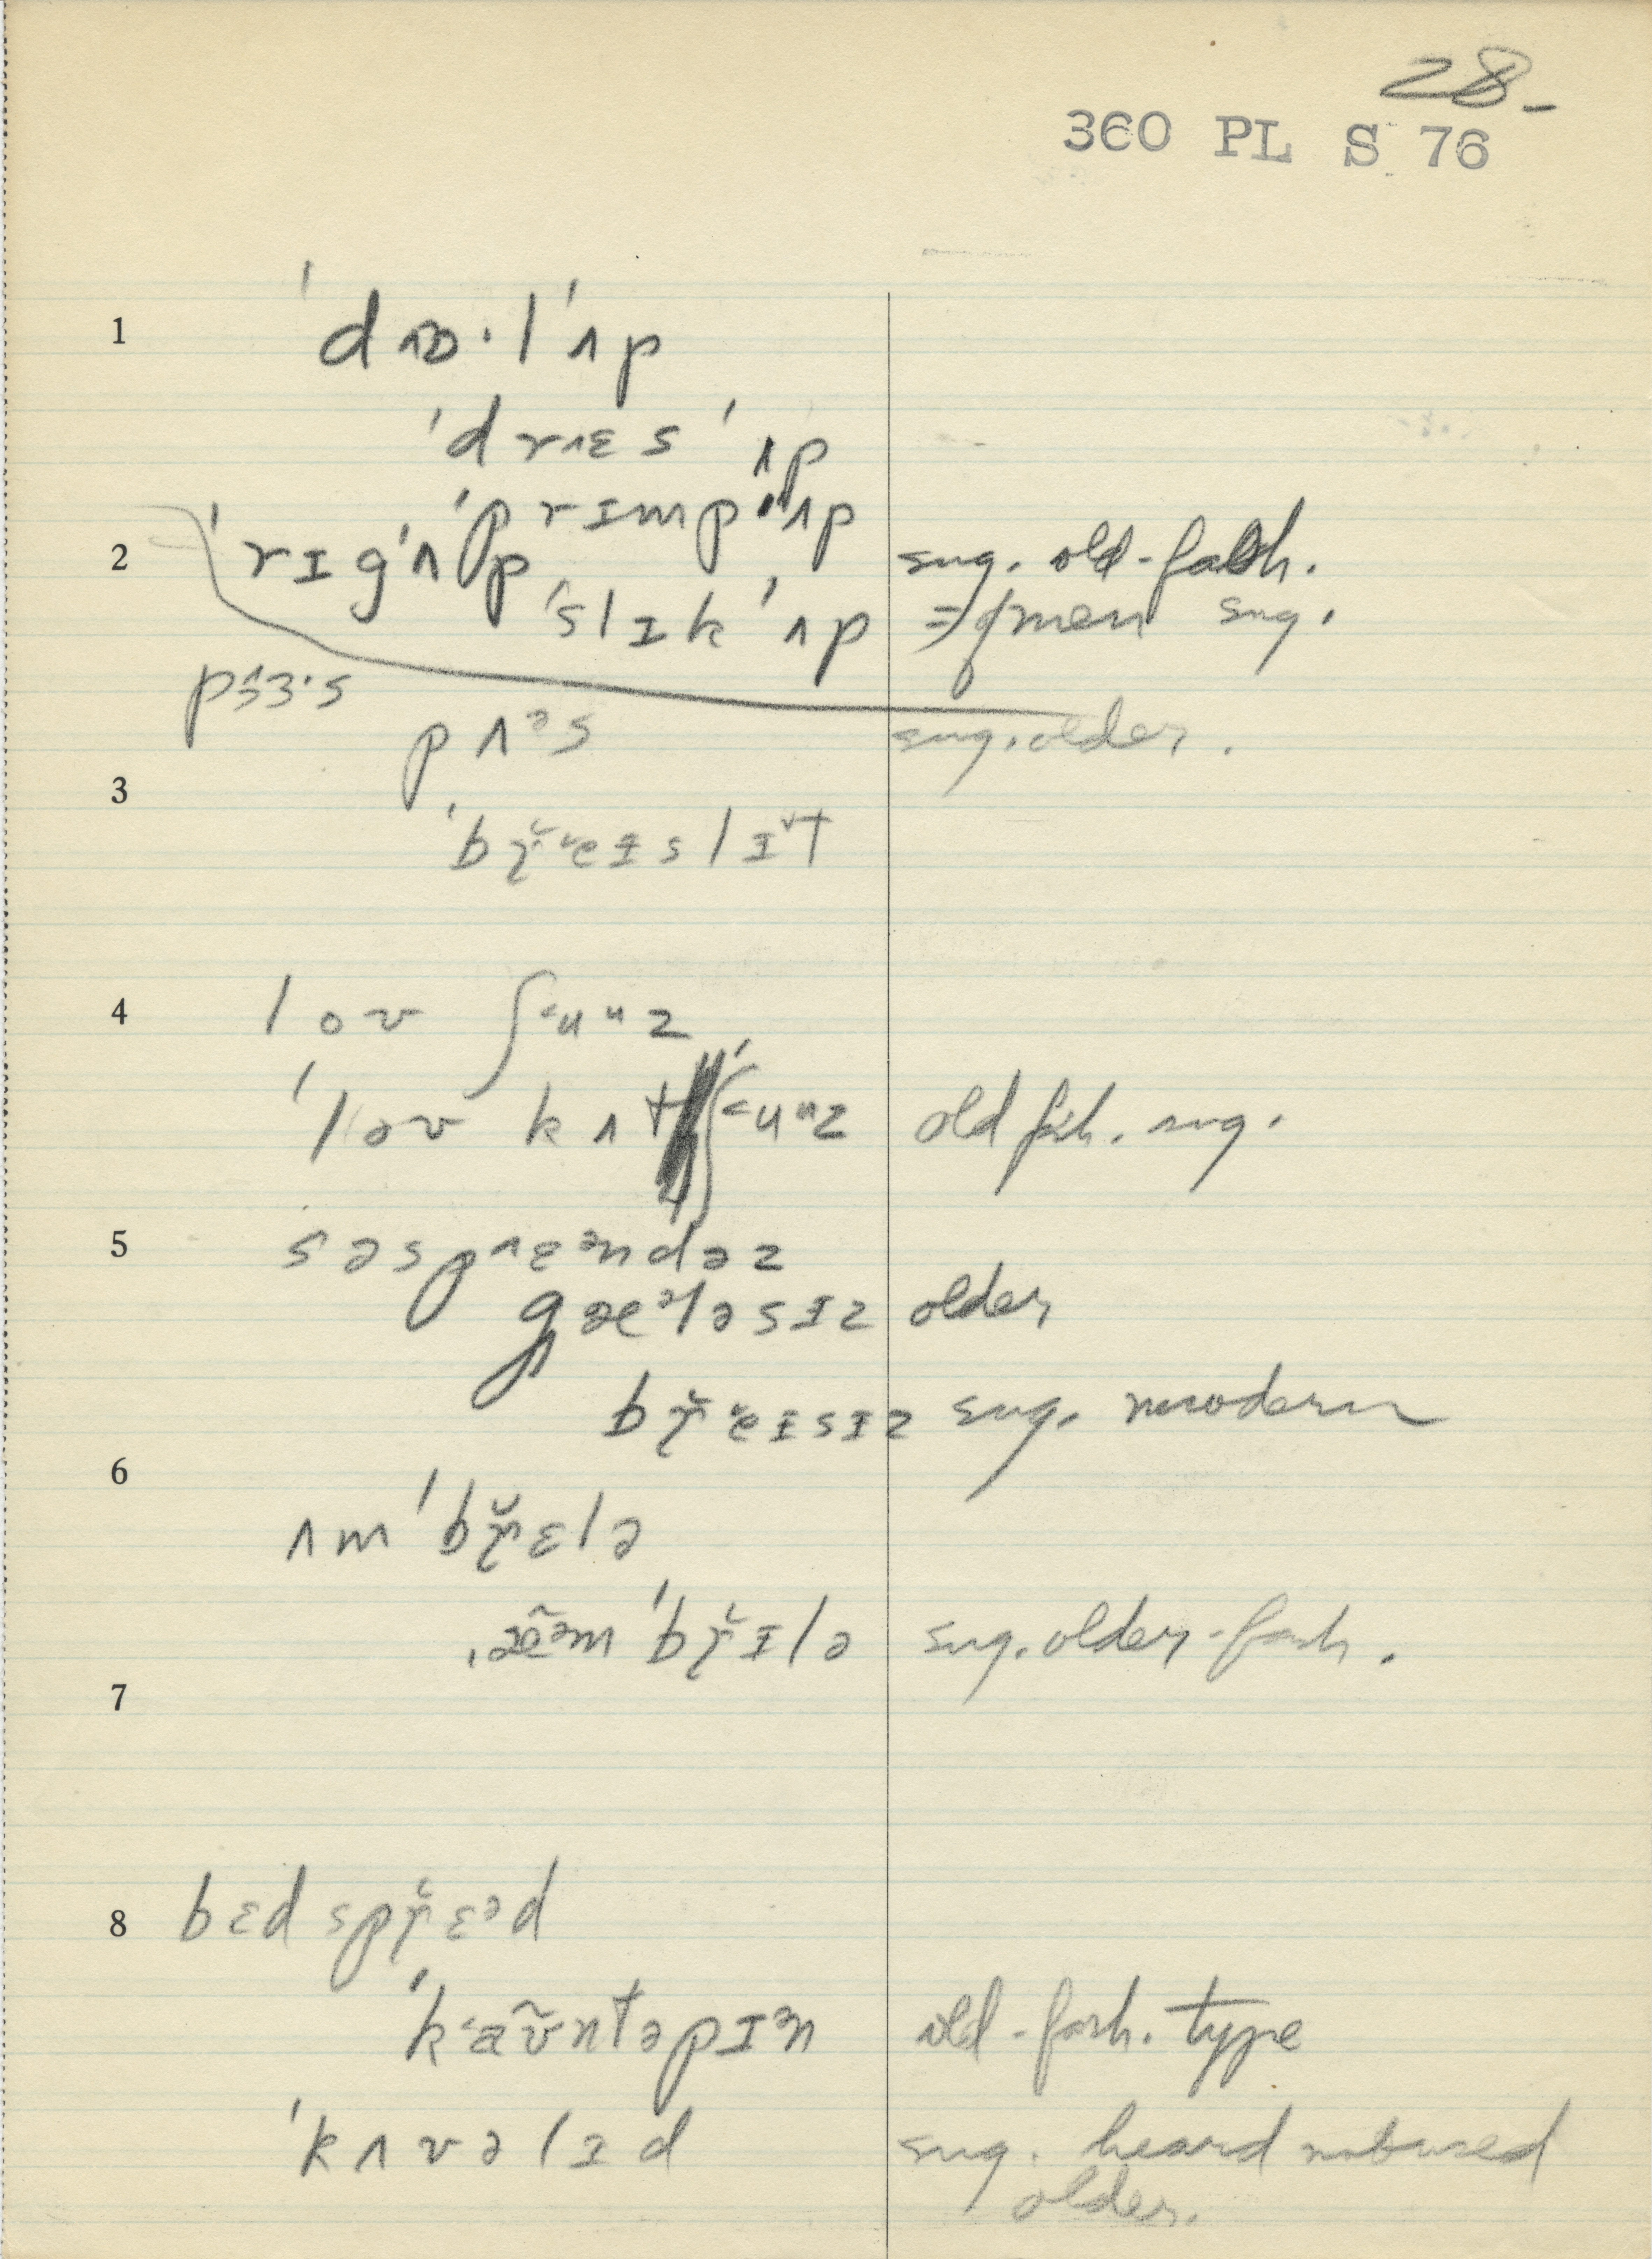 28-
360 PL S 76
1 ˈdɒ·lˈʌp
ˈdrɛsˈʌp
ˈprɪmpˈʌp
2 ˈrɪgˈʌp sug. old-fash.
ˈslɪkˈʌp sug.
pɜɜ·s
pʌᵊs sug. older.
3
ˈbr̆eɪslɪt
4 lov ʃuᵘz
ˈlov kʌt ʃuᵘz old fsh. sug.
5 səspɛᵊndəz
gæᵊləsɪz older
br̆eɪsɪz sug. modern
6
ʌmˈbr̆ɛlə
ˌæ̃ᵊmˈbr̆ɪlə sug. older-fash.
7
8 bɛdspr̆ɛᵊd
ˈkaʊ̃ntəpɪᵊn old-fash. type
ˈkʌvəlɪd sug. heard not used
older.